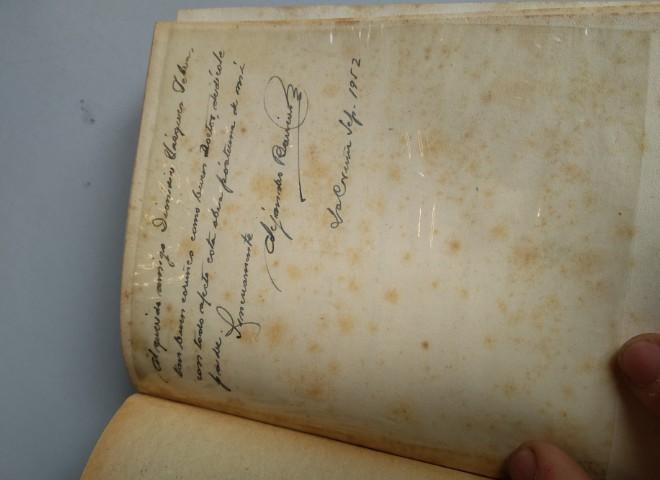 Al querido amigo Dionisio Vázquez
tan buen coruñés como buen Doctor, dedícole
con todo afecto esta obra póstuma de mi
padre
Sinceramente
Alejandro Barreiro
La Coruña Sep. 1952